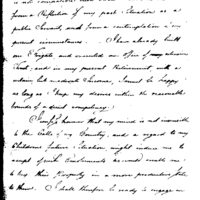 from a Reflection of my past Situation as a
public Servant, and from a contemplation of my
present circumstances. I have already built
an and executed an office of
Trust, and in my present Retirement, with a
certain but moderate Income, I must be happy
as long as I keep my desires within the reasonable
bounds of a strict compliancy.
I confess however that my mind is not insensible
to the Calls of my Country, and a regard to my
Children's future Situation might induce me to
accept of such Emoluments as would enable me
to buy their Property in a more productive state
to them. I shall therefore be ready to engage in